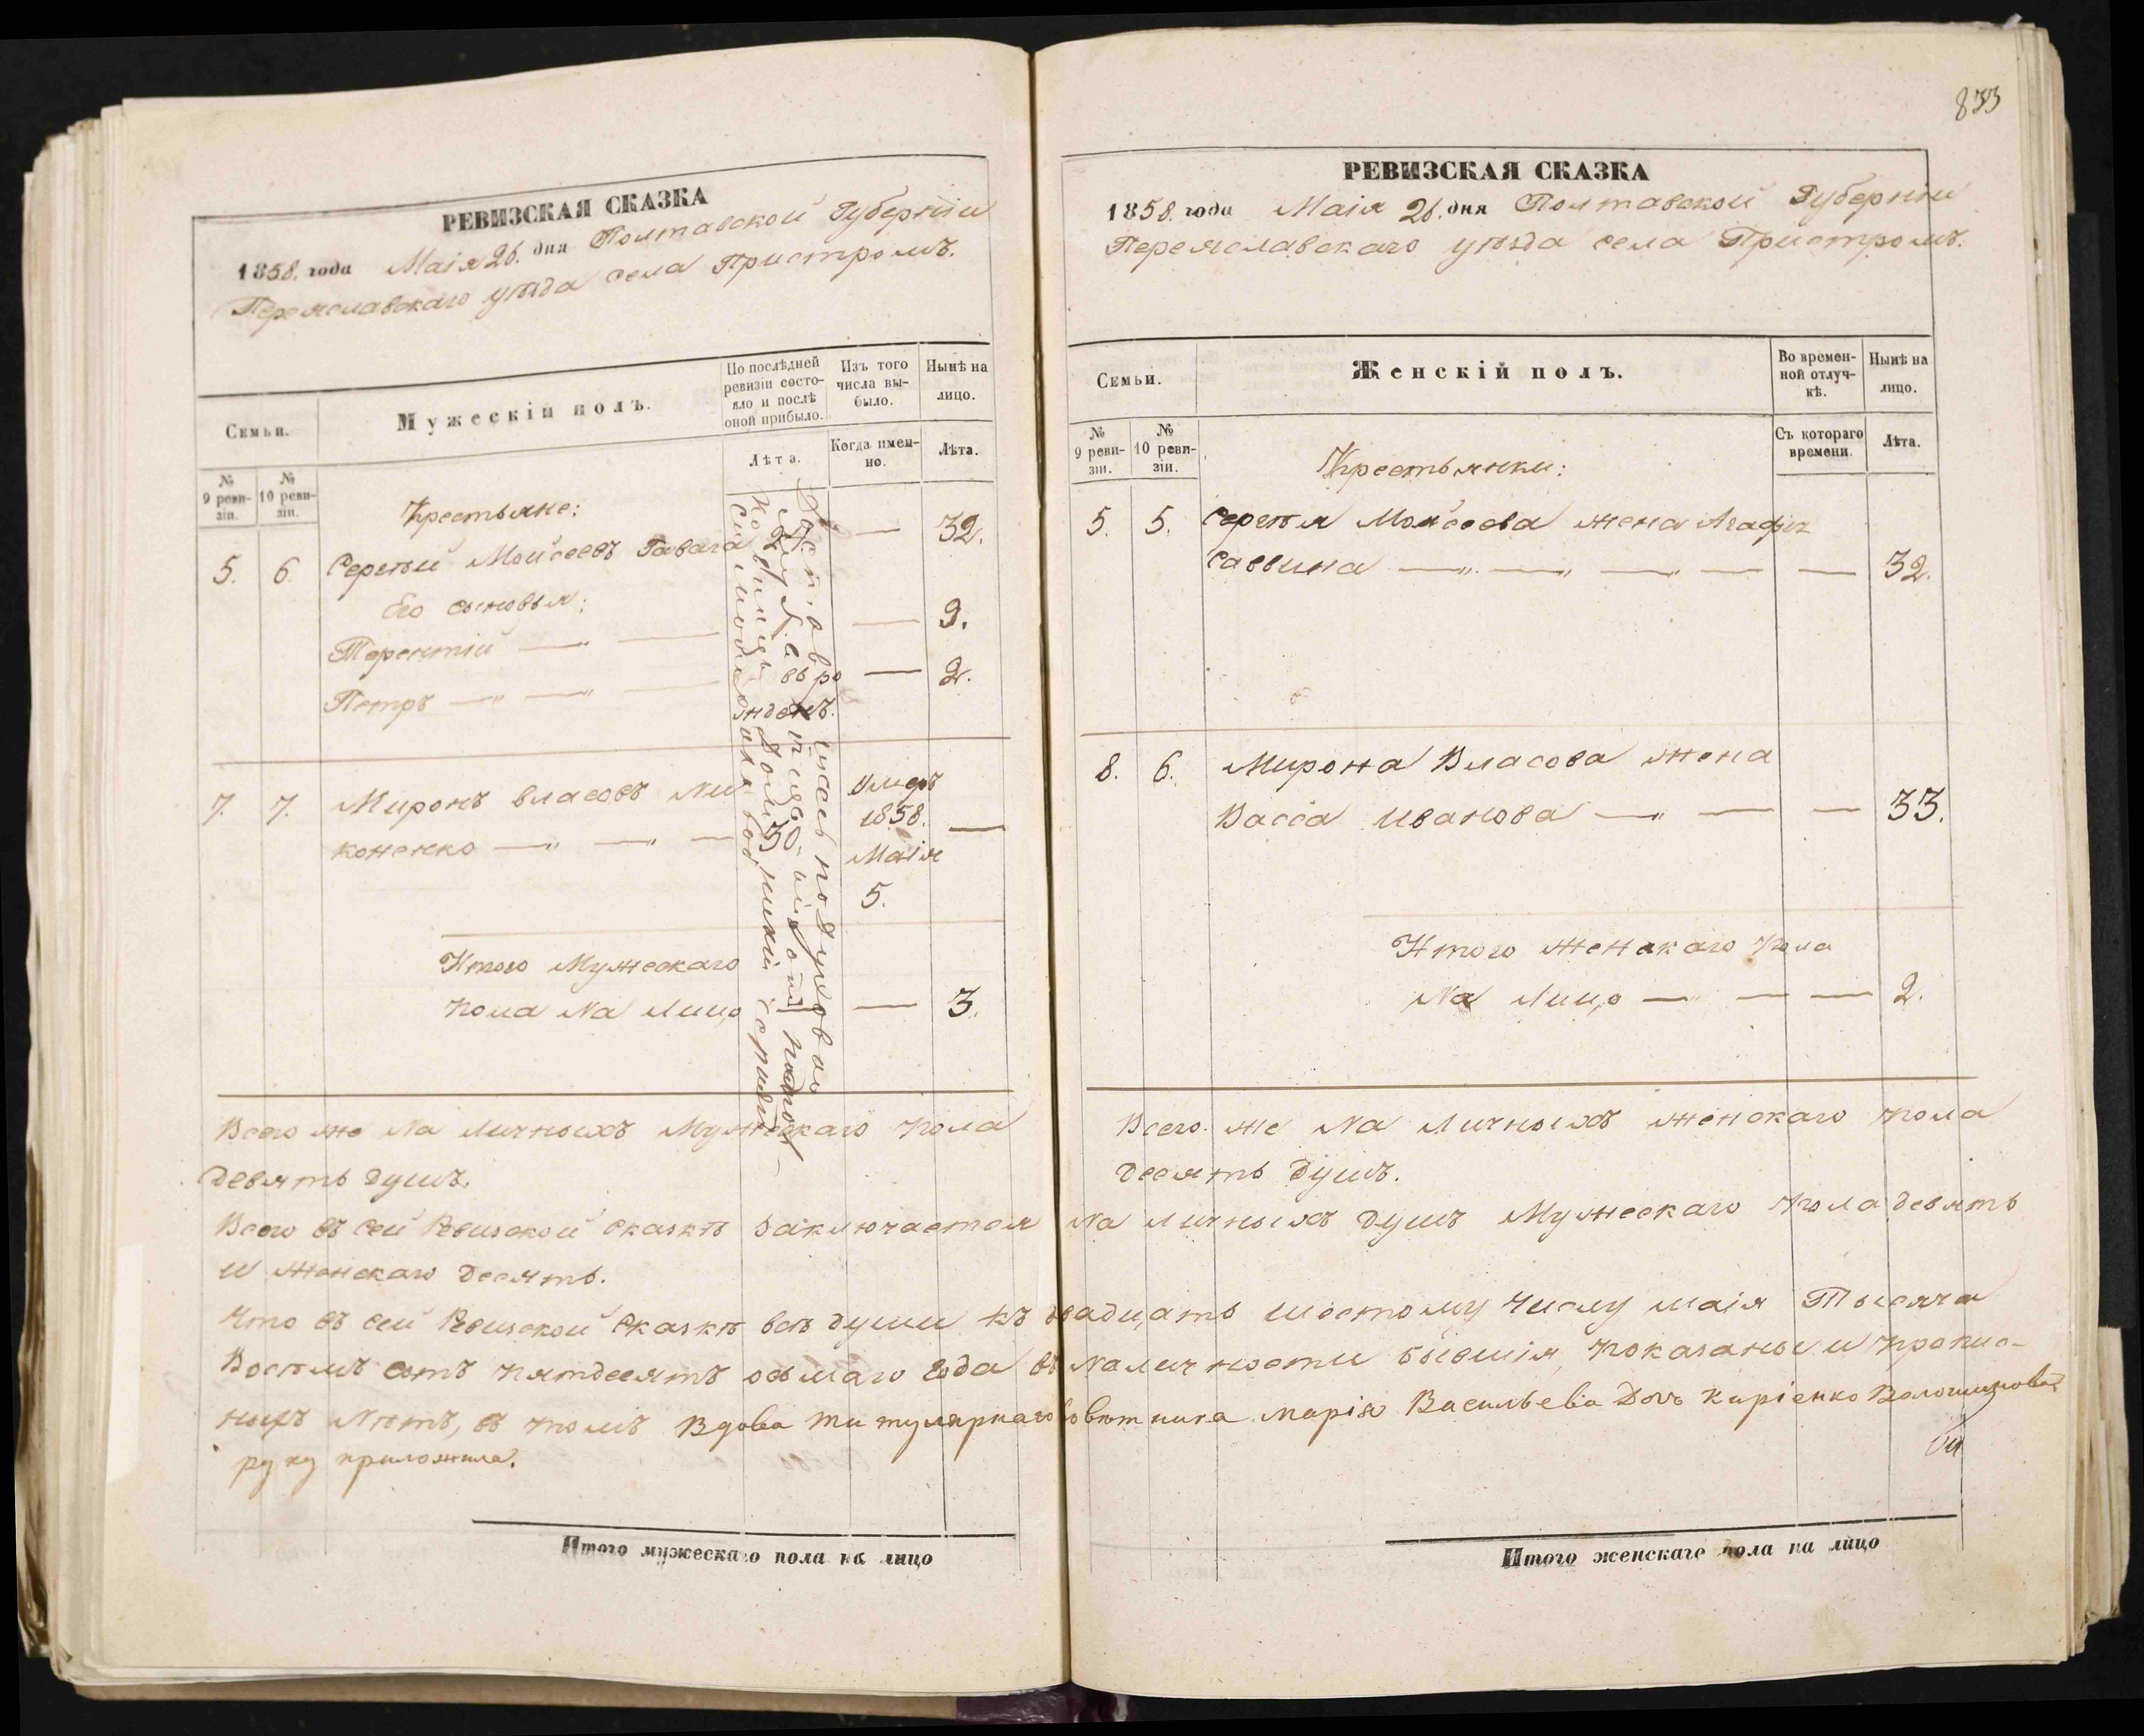 РЕВИЗСКАЯ СКАЗКА
1858. года Маія 26. дня Полтавской Губерніи
Переяславскаго уѣзда села Пристромъ.
Семьи.
Мужескій полъ.
По послѣдней ревизіи состояло и послѣ оной прибыло.
Изъ того числа выбыло.
Нынѣ на лицо.
№ 9 ревизіи.
№ 10 ревизіи.
Лѣта.
Когда именно.
Лѣта.
Крестьяне:
5. 6. Сергѣй Моисеевъ Гавага 24. — 32.
Его сыновья:
Терентій — " — вь ро — 9.
Петръ — " — " — жденъ. — 2.
7. 7. Миронъ Власовъ Ни- Умеръ
коненко — " — " — 30. 1858. —
Маія
5.
Итого Мужескаго
пола На Лицо — 3.
Всего же На личныхъ Мужескаго пола
девять душъ.
Всего въ сей Ревизской сказкѣ Заключается На личныхъ душъ Мужескаго пола девять
и женскаго десять.
Что въ сей Ревизской Сказкѣ всѣ души къ двадцать шестому Числу маія Тысяча
Восѣмъ сотъ пятдесятъ осьмаго Года въ Наличности бывшія, показаны и пропис-
ныхъ Нѣтъ, въ томъ Вдова титулярнаго совѣтника Марія Васильева Дочь Киріенко Волошинова
руку приложила.
Итого мужескаго пола на лицо
833
РЕВИЗСКАЯ СКАЗКА
1858. года Маія 26. дня Полтавской Губерніи
Переяславскаго уѣзда села Пристромъ.
Семьи.
Женскій полъ.
Во временной отлучкѣ.
Нынѣ на лицо.
№ 9 ревизіи.
№ 10 ревизіи.
Съ котораго времени.
Лѣта.
Крестьянки:
5. 5. Сергѣя Моисеева жена Агафія
Саввина — " — " — " — — 32.
8. 6. Мирона Власова жена
Васса Иванова — " — — 33.
Итого женскаго пола
На Лицо — " — — 2.
Всего же На Личныхъ женскаго пола
десять душъ.
Итого женскаго пола на лицо